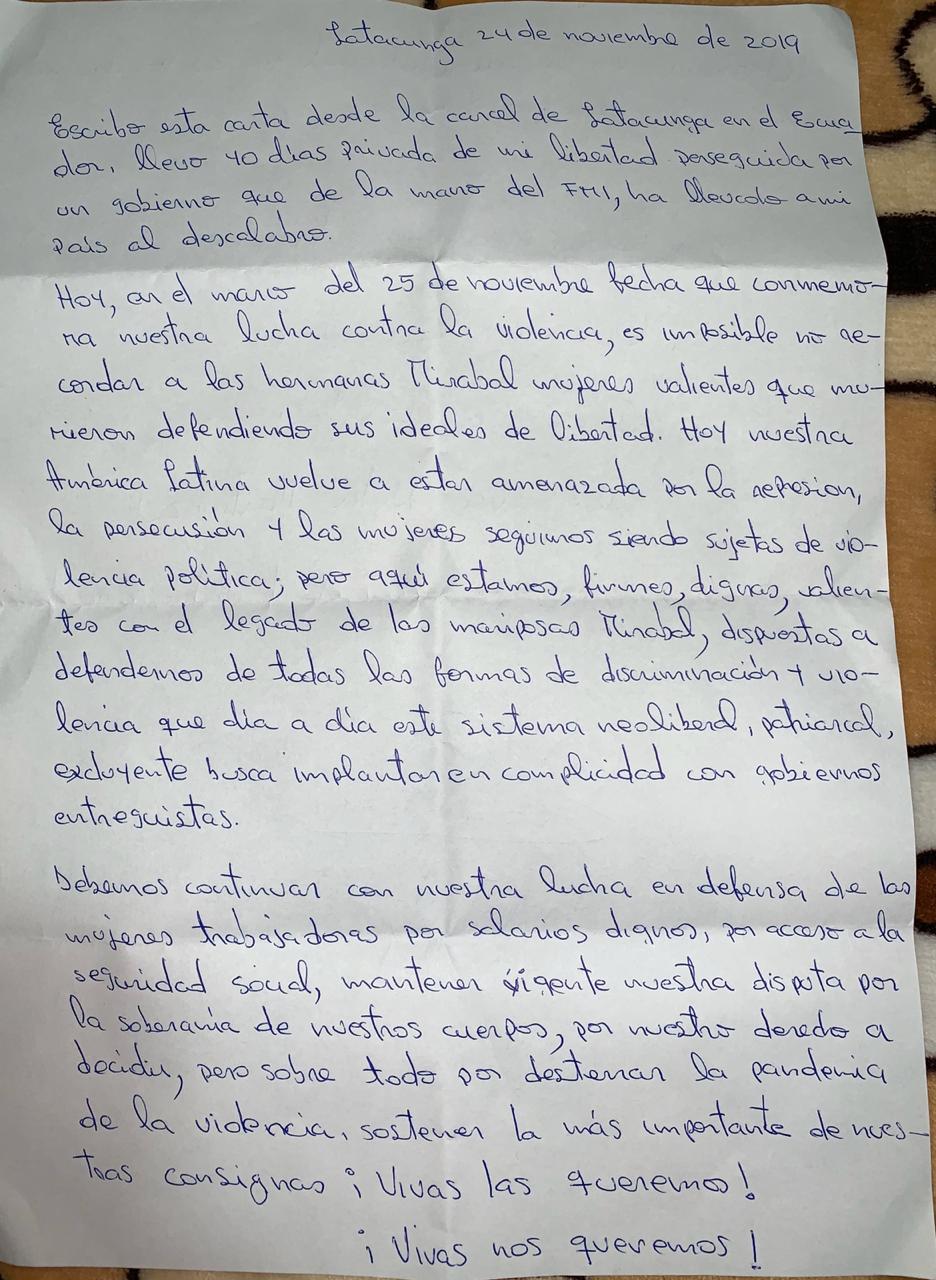 Latacunga 24 de noviembre de 2019
Escribo esta carta desde la carcel de Latacunga en el Ecua
dor, llevo 40 días privada de mi libertad perseguida por
un gobierno que de la mano del FMI, ha llevado a mi
país al descalabro.
Hoy, en el marco del 25 de noviembre fecha que conmemo-
ra nuestra lucha contra la violencia, es imposible no re-
cordar a las hermanas Mirabal mujeres valientes que mu-
rieron defendiendo sus ideales de libertad. Hoy nuestra
América Latina vuelve a estar amenazada por la represion,
la persecusión y las mujeres seguimos siendo sujetas de vio-
lencia política; pero aquí estamos, firmes, dignas, valien-
tes con el legado de las mariposas Mirabal, dispuestas a
defendernos de todas las formas de discriminación y vio-
lencia que día a día este sistema neoliberal, patriarcal,
excluyente busca implantar en complicidad con gobiernos
entreguistas.
Debemos continuar con nuestra lucha en defensa de las
mujeres trabajadoras por salarios dignos, por acceso a la
seguridad social, mantener vigente nuestra disputa por
la soberanía de nuestros cuerpos, por nuestro derecho a
decidir, pero sobre todo por desterrar la pandemia
de la violencia, sostener la más importante de nues-
tras consignas ¡Vivas las queremos!
¡Vivas nos queremos!